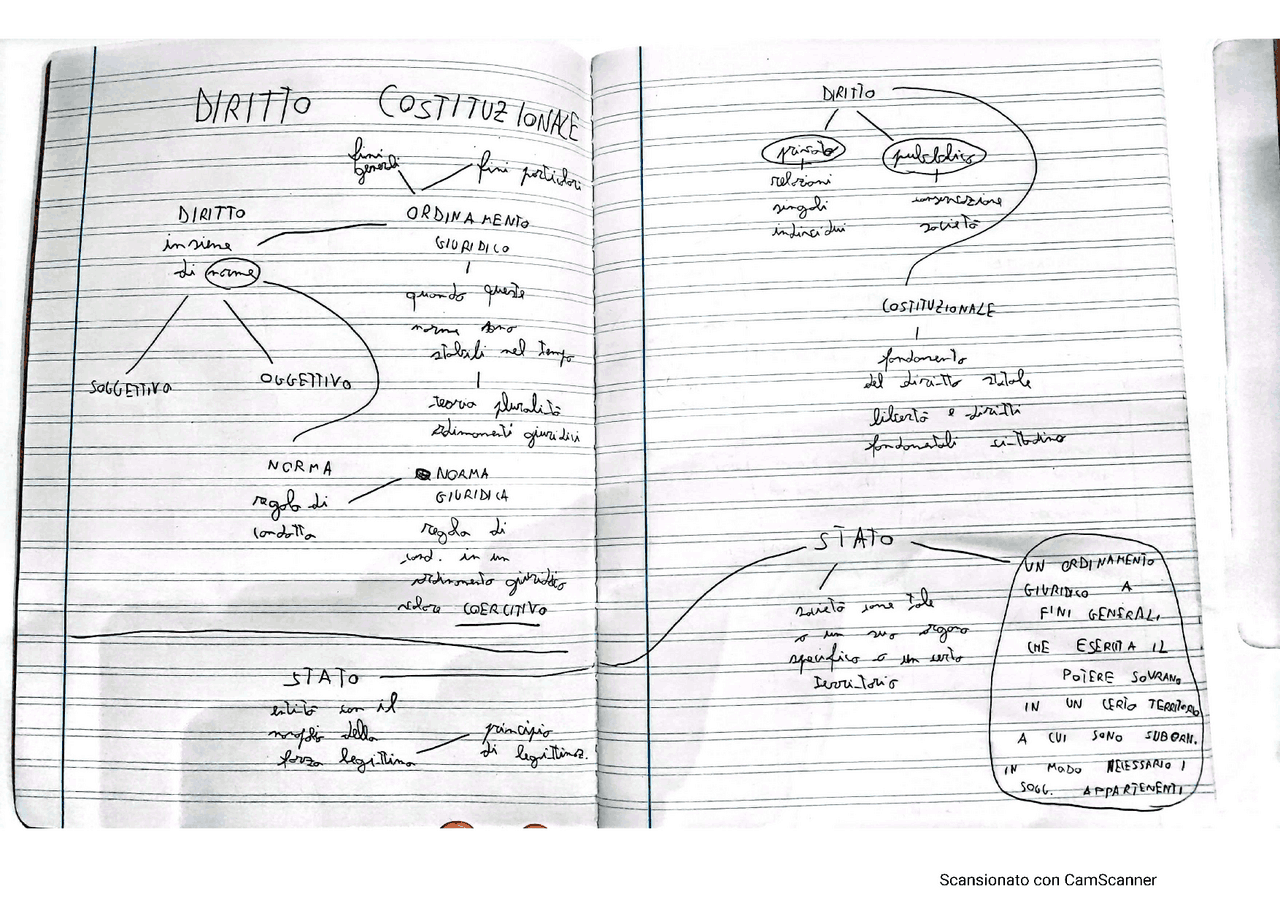 DIRITTO COSTITUZIONALE
fini
generali
fini particolari
DIRITTO
insieme
di norme
SOGGETTIVO
OGGETTIVO
ORDINAMENTO
GIURIDICO
quando queste
norme sono
stabili nel tempo
teoria pluralità
ordinamenti giuridici
NORMA
regola di
condotta
NORMA
GIURIDICA
regola di
cond. in un
ordinamento giuridico
valore COERCITIVO
STATO
entità con il
monoplio della
forza legittima
principio
di legittimaz.
DIRITTO
privato
relazioni
singoli
individui
pubblico
conservazione
società
COSTITUZIONALE
fondamento
del diritto statale
libertà e diritti
fondamentali cittadino
STATO
società come tale
o un suo organo
specifico o un certo
territorio
UN ORDINAMENTO
GIURIDICO A
FINI GENERALI
CHE ESERCITA IL
POTERE SOVRANO
IN UN CERTO TERRITORIO
A CUI SONO SUBORN.
IN MODO NECESSARIO I
SOGG. APPARTENENTI
Scansionato con CamScanner